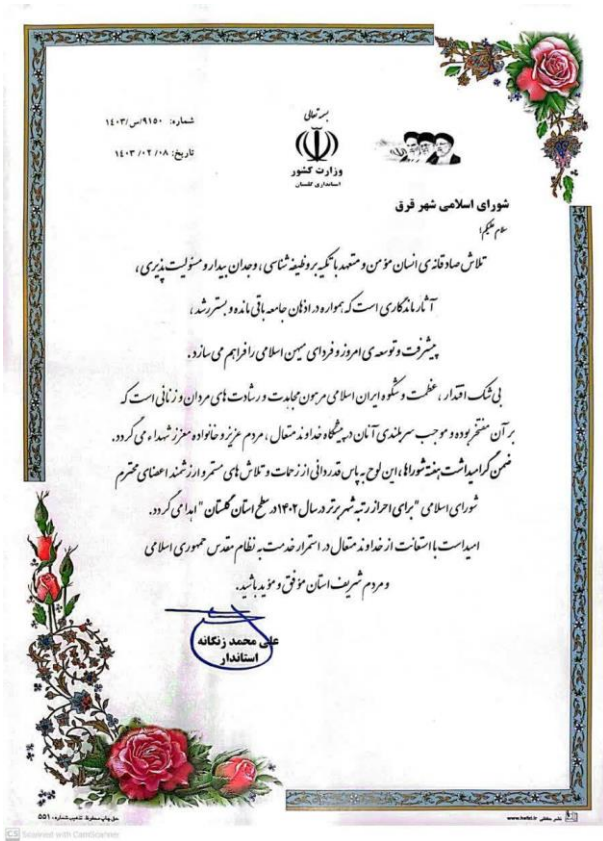 بسمه تعالی
شماره: ۹۱۵۰/س/۱۴۰۳
تاریخ: ۱۴۰۳/۰۲/۰۸
وزارت کشور
استانداری گلستان
شورای اسلامی شهر قرق
سلام علیکم؛
تلاش صادقانه‌ی انسان مؤمن و متعهد با تکیه بر وظیفه شناسی، وجدان بیدار و مسئولیت پذیری،
آثار ماندگاری است که همواره در اذهان جامعه باقی مانده و بستر رشد،
پیشرفت و توسعه‌ی امروز و فردای میهن اسلامی را فراهم می سازد.
بی شک اقتدار، عظمت و شکوه ایران اسلامی مرهون مجاهدت و رشادت های مردان و زنانی است که
بر آن مفتخر بوده و موجب سربلندی آنان در پیشگاه خداوند متعال، مردم عزیز و خانواده معزز شهداء می گردد.
ضمن گرامیداشت هفته شوراها، این لوح به پاس قدردانی از زحمات و تلاش های مستمر و ارزشمند اعضای محترم
شورای اسلامی "برای احراز رتبه شهر برتر در سال ۱۴۰۲ در سطح استان گلستان" اهدا می گردد.
امید است با استعانت از خداوند متعال در استمرار خدمت به نظام مقدس جمهوری اسلامی
و مردم شریف استان مؤفق و مؤید باشید.
علی محمد زنگانه
استاندار
حق چاپ محفوظ تذهیب شماره: 551
www.hefzi.ir
CS Scanned with CamScanner